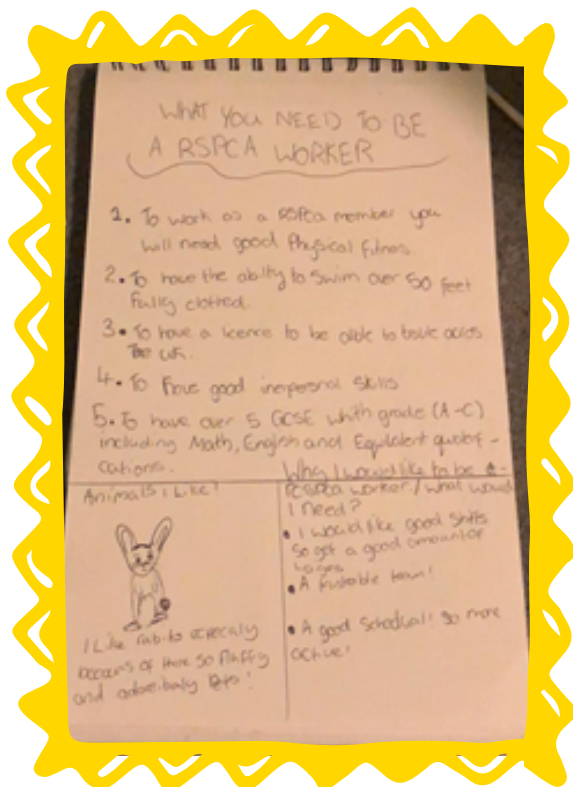 WHAT YOU NEED TO BE
A RSPCA WORKER
1. To work as a RSPCa member you
will need good Physical fitness.
2. To have the ability to Swim over 50 feet
Fully clothed.
3. To have a licence to be able to across
The UK.
4. To have good inerpesnal Skills
5. To have over 5 GCSE whith grade (A-C)
including Math, English and Equivlent qualif-
cations.
Animals i Like!
I Like rabits
of there so fluffy
and
Why I would like to be a
RSPCA worker / what would
I need?
• I would like good Shifts
So get a good amount of
wages
• A team!
• A good Schedual! So more
active!